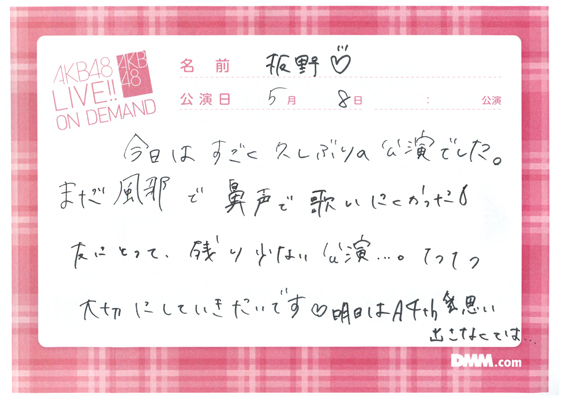 AKB48
LIVE!!
ON DEMAND
AKB
48
名前 板野♡
公演日 5月 8日 : 公演
今日はすごく久しぶりの公演でした。
まだ風邪で鼻声で歌いにくかった
友にとって、残り少ない公演...。1つ1つ
大切にしていきたいです♡明日はA4th思い
出さなくては...
DMM.com